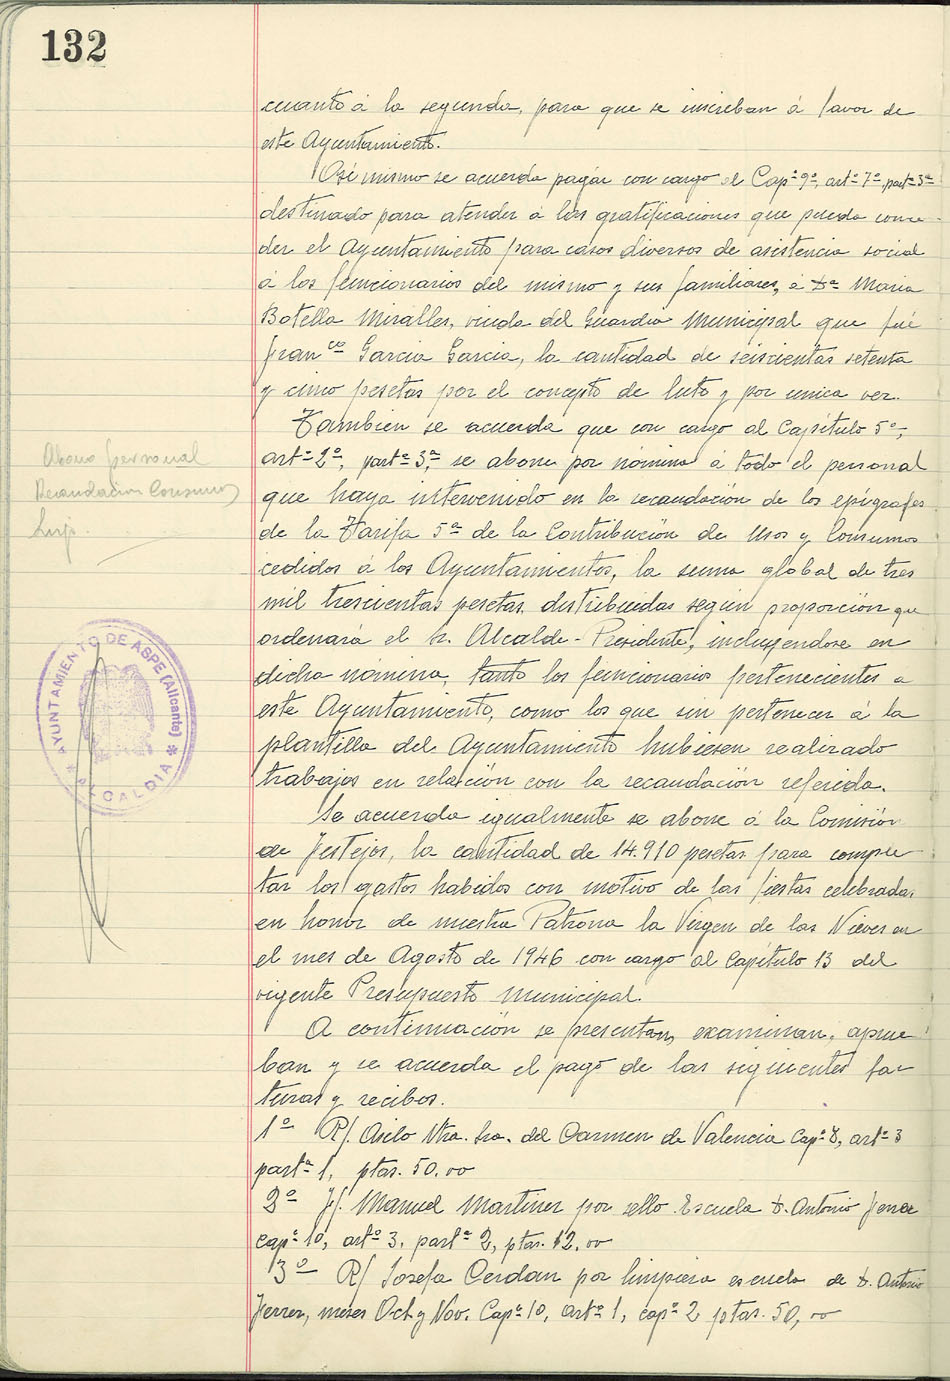 132
cuanto á la segunda, para que se inscriban á favor de
este Ayuntamiento.
Asi mismo se acuerda pagar con cargo el Capº 9º, artº 7º, partª 3ª
destinado para atender á las gratificaciones que pueda conce-
der el Ayuntamiento para casos diversos de asistencia social
á los funcionarios del mismo y sus familiares, á Dª Maria
Botella Miralles, viuda del Guardia Municipal que fué
Franco Garcia Garcia, la cantidad de seiscientas setenta
y cinco pesetas por el concepto de luto y por unica vez.
Tambien se acuerda que con cargo al Capítulo 5º,
artº 2º, partª 3ª, se abone por nómina á todo el personal
que haya intervenido en la recaudación de los epígrafes
de la Tarifa 5ª de la Contribución de Usos y Consumos
cedidos á los Ayuntamientos, la suma global de tres
mil trescientas pesetas, distribuidas según proporción que
ordenará el Sr. Alcalde-Presidente, incluyendose en
dicha nómina, tanto los funcionarios pertenecientes a
este Ayuntamiento, como los que sin pertenecer á la
plantilla del Ayuntamiento hubiesen realizado
trabajos en relación con la recaudación referida.
Se acuerda igualmente se abone á la Comisión
de Festejos, la cantidad de 14.910 pesetas para comple-
tar los gastos habidos con motivo de las fiestas celebradas
en honor de nuestra Patrona la Virgen de las Nieves en
el mes de Agosto de 1946 con cargo al Capítulo 13 del
vigente Presupuesto Municipal.
A continuación se presentan, examinan, aprue-
ban y se acuerda el pago de las siguientes fac-
turas y recibos.
1º R/. Asilo Ntra. Sra. del Carmen de Valencia Capº 8, artº 3
partª 1, ptas. 50,00
2º F/. Manuel Martinez por sello Escuela D. Antonio Ferrer
capº 10, artº 3, partª 2, ptas. 12,00
3º R/ Josefa Cerdan por limpieza escuela de D. Antonio
Ferrer, meses Oct y Nov. Capº 10, artº 1, capº 2 ptas. 50,00
Abono personal
Recaudacion Consumos
Lujo
AYUNTAMIENTO DE ASPE (Alicante)
ALCALDIA